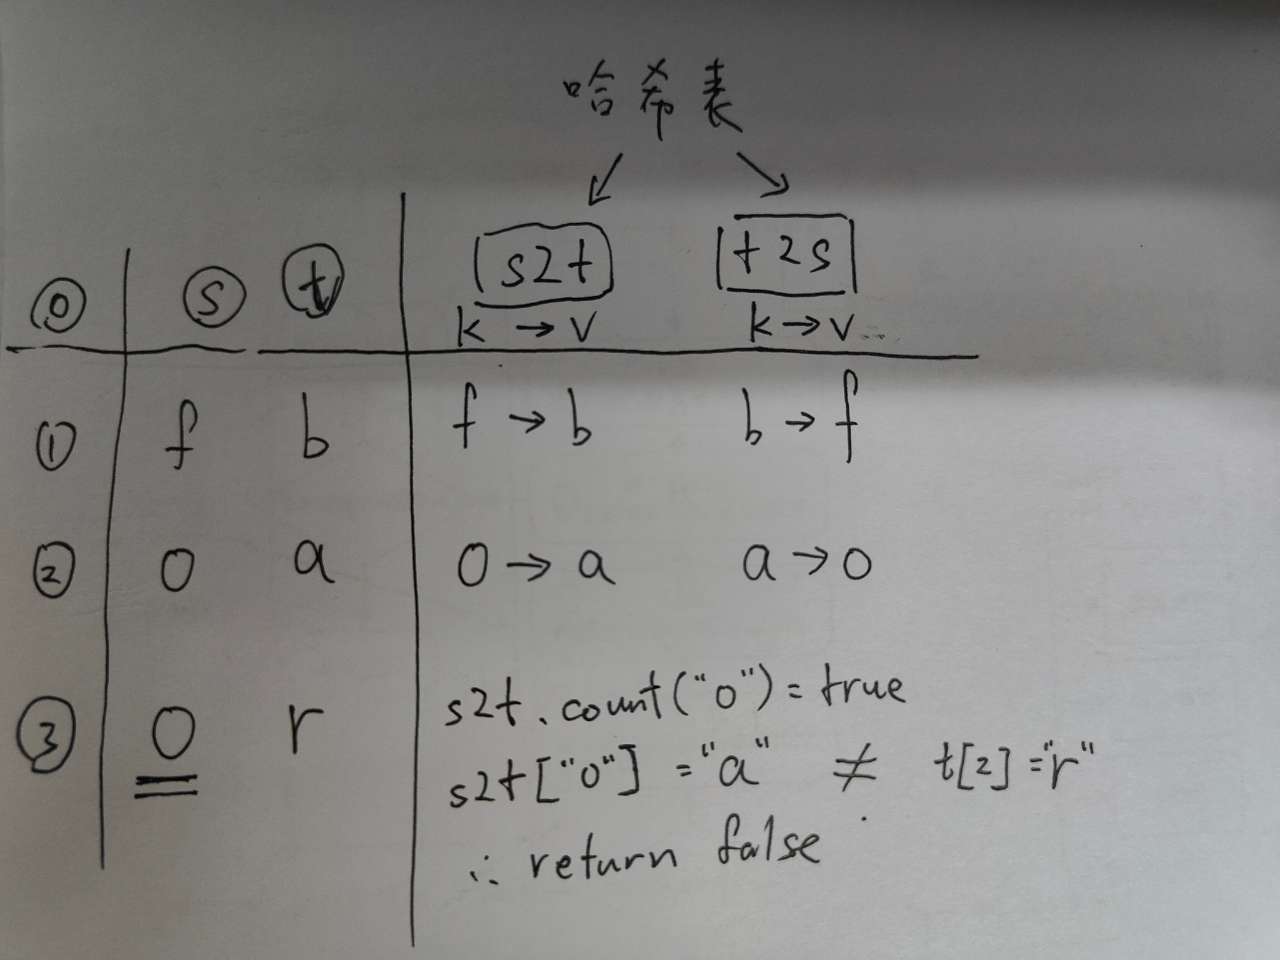 哈希表
↙ ↘
⓪ ⓢ ⓣ s2t t2s
k → v k → v
① f b f → b b → f
② o a o → a a → o
③ o r s2t.count("o") = true
s2t["o"] = "a" ≠ t[2] = "r"
∴ return false